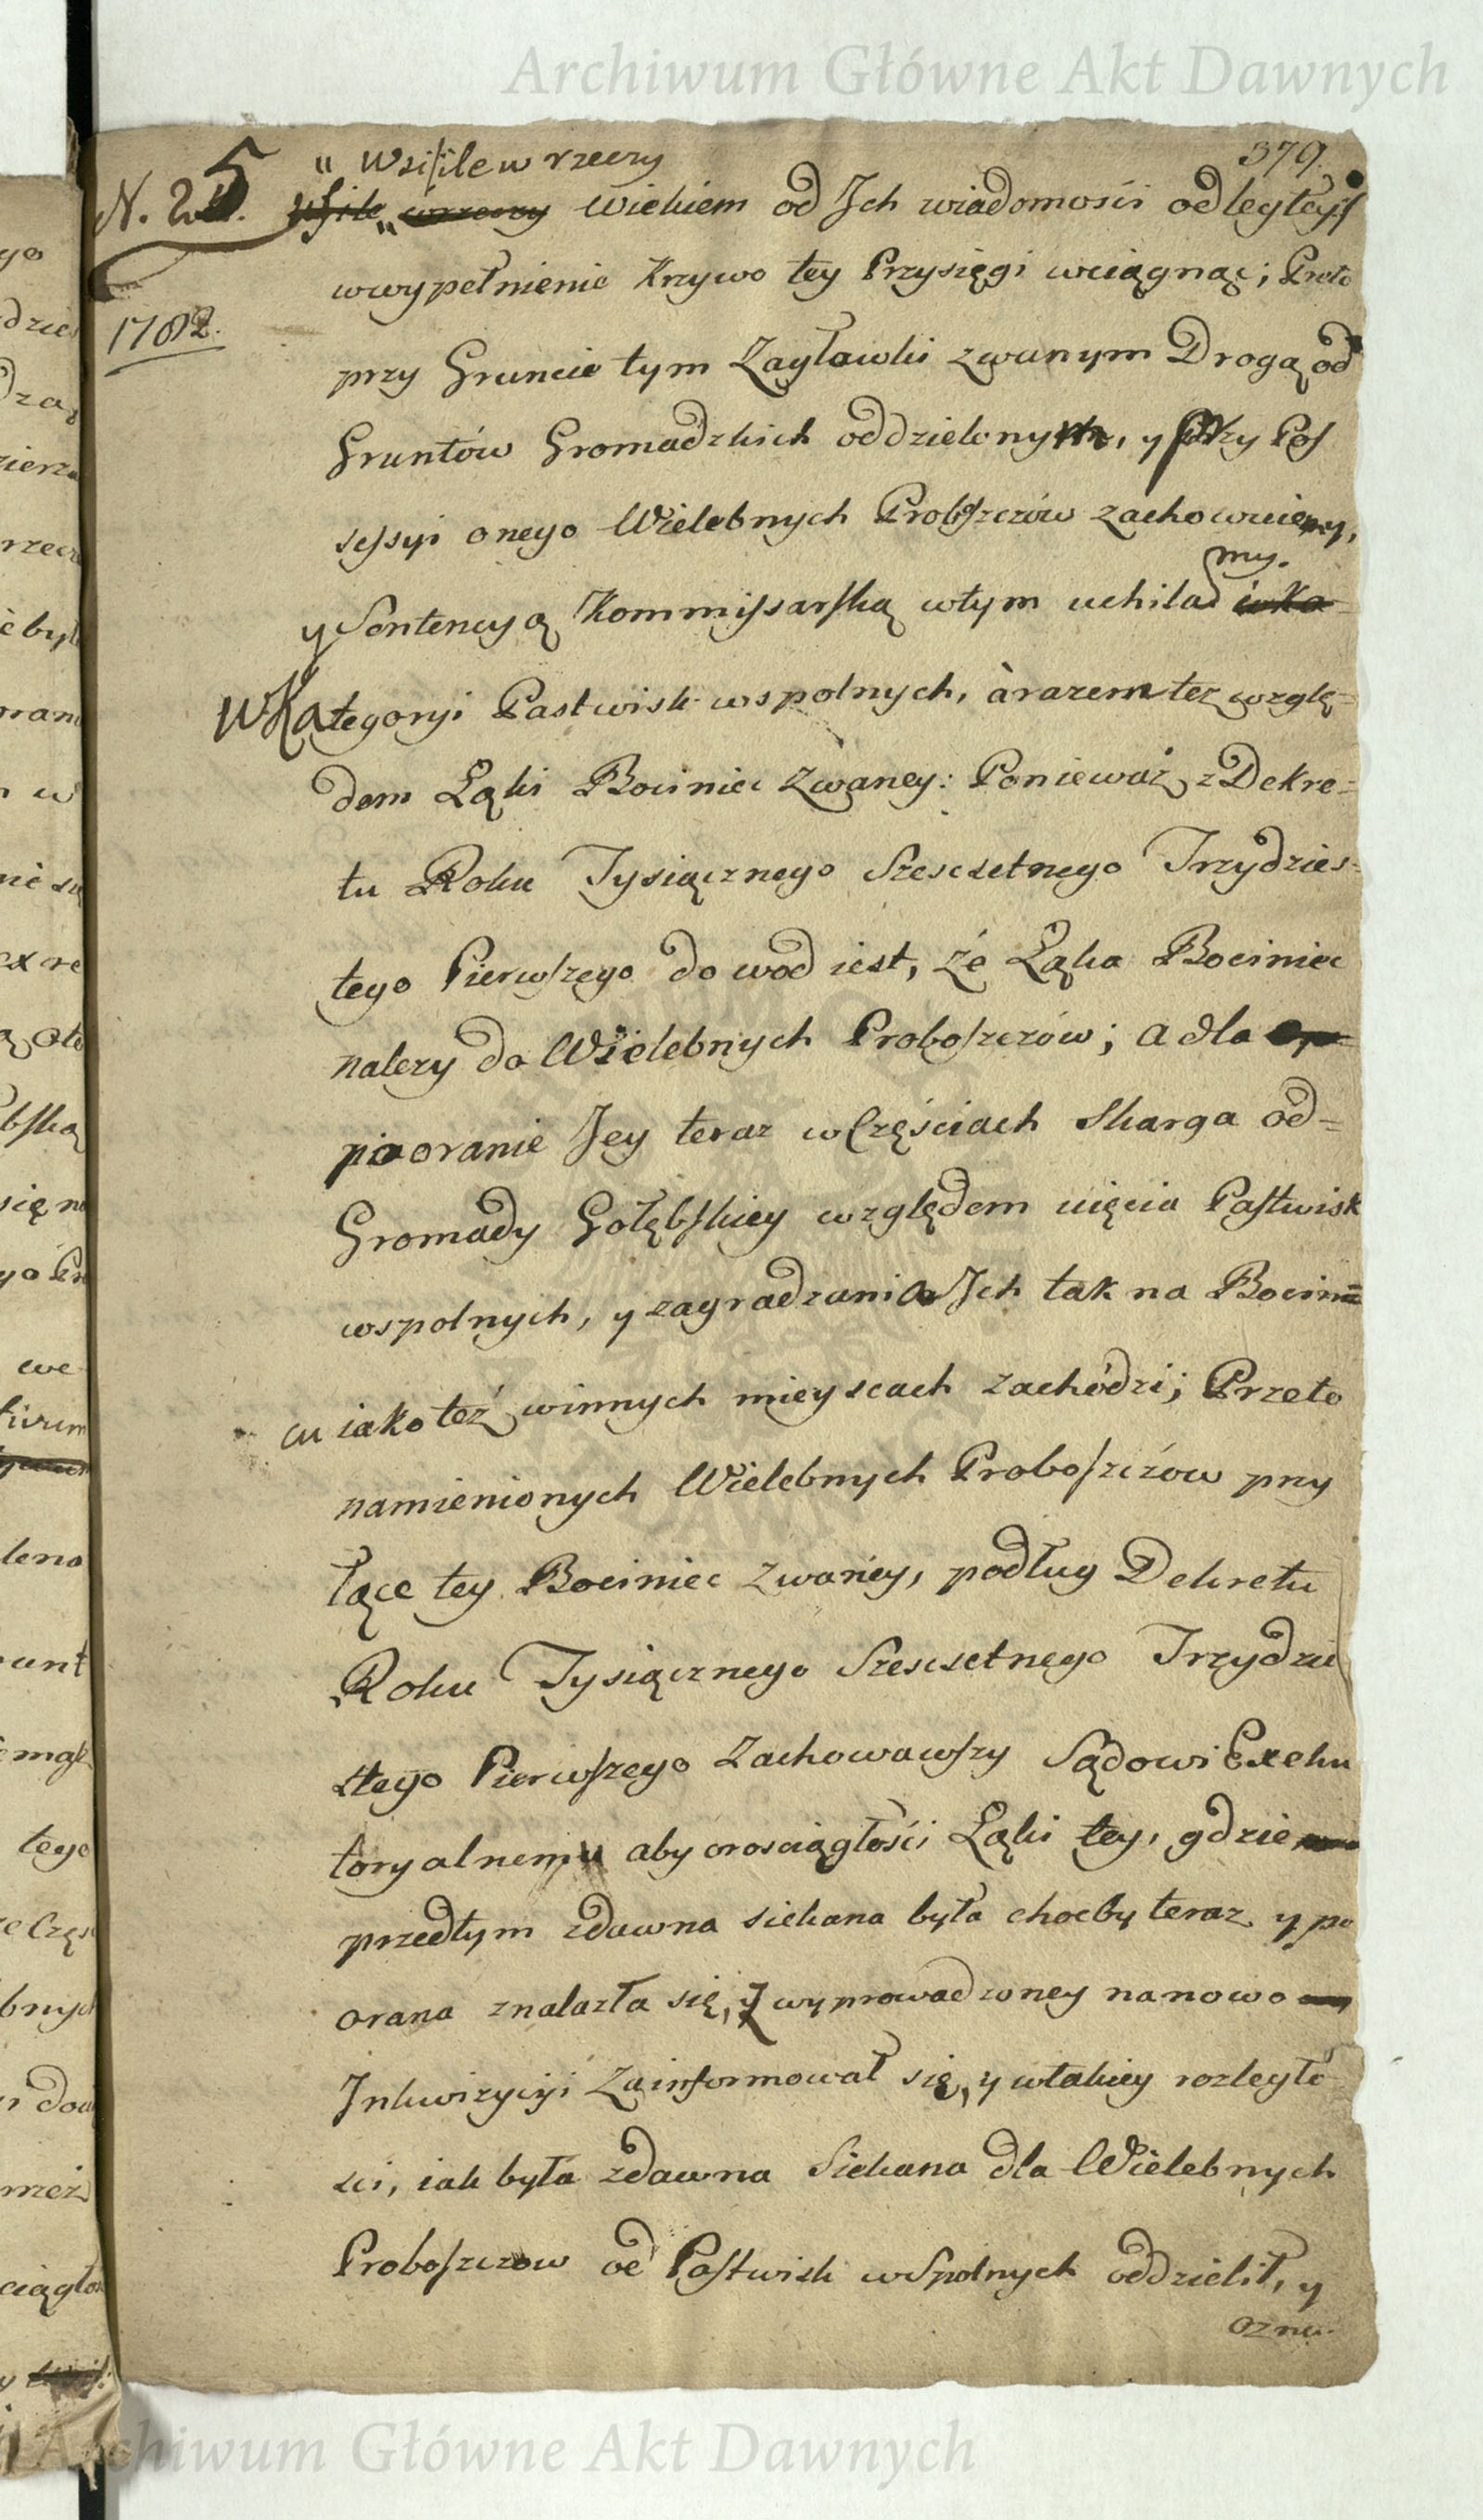 Archiwum Główne Akt Dawnych
379.
N. 25.
1782.
" Wsiśile w rzeczy
wśile " w rzeczy wiekiem od Jch wiadomosći odległey
wwypełnienie Krzywo tey Przysięgi wciągnąć; Przeto
przy Gruncie tym Zagławki zwanym Drogą od
Gruntów Gromadzkich oddzielonym, y przy Pos
sessyi onego Wielebnych Proboszczów zachowuiemy,
y Sentencyą Kommissarską wtym uchilamy. wka
WKategoryi Pastwisk wspolnych, à razem tez wzglę=
dem Łąki Bociniec Zwaney: Ponieważ z Dekre=
tu Roku Tysiącznego Szescsetnego Trzydzies=
tego Pierwszego dowod iest, że Łąka Bociniec
nalezy do Wielebnych Proboszczów; a dla
pooranie Jey teraz w Częściach Skarga od=
Gromady Gołębskiey względem uięcia Pastwisk
wspolnych, y zagradzania Jch tak na Bociń
cu iako też winnych mieyscach zachodzi; Przeto
namienionych Wielebnych Proboszczow przy
łące tey Bociniec zwaney, podług Dekretu
Roku Tysiącznego Szescsetnego Trzydzie
stego Pierwszego Zachowawszy Sądowi Exeku
toryalnemu aby orosciągłości Łąki tey, gdzie
przedtym zdawna siekana była choćby teraz y po
orana znalazła się, z wyprowadzoney nanowo
Jnkwizycyi Zainformował się, y wtakiey rozległo
sci, iak była zdawna Siekana dla Wielebnych
Proboszczow od Pastwisk wspolnych oddzielił, y
ozna-
Archiwum Główne Akt Dawnych